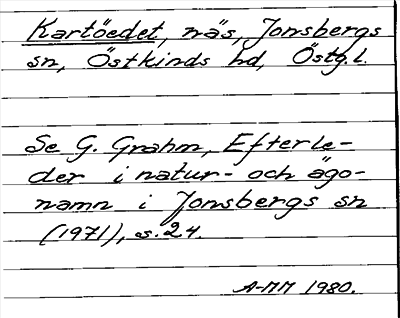 Kartöedet, näs, Jonsbergs
sn, Östkinds hd, Östg.l.
Se G. Grahm, Efterle-
der i natur- och ägo-
namn i Jonsbergs sn
(1971), s. 24.
A-MM 1980.